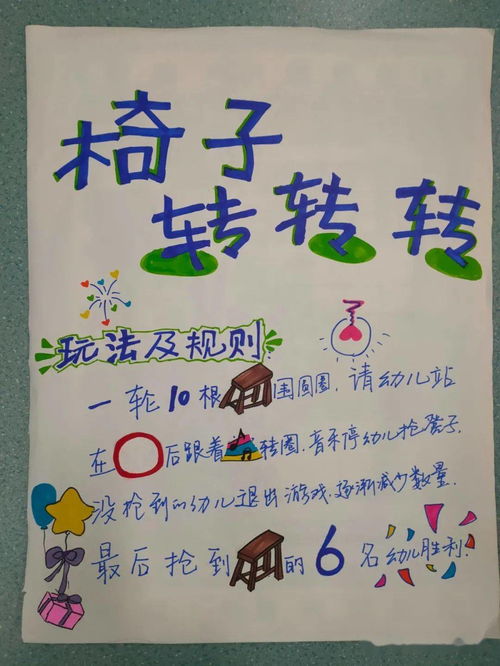 椅子
转转转
玩法及规则
一轮10根围圆圈，请幼儿站
在后跟着转圈，音乐停幼儿抢凳子，
没抢到的幼儿退出游戏，逐渐减少数量，
最后抢到的6名幼儿胜利。